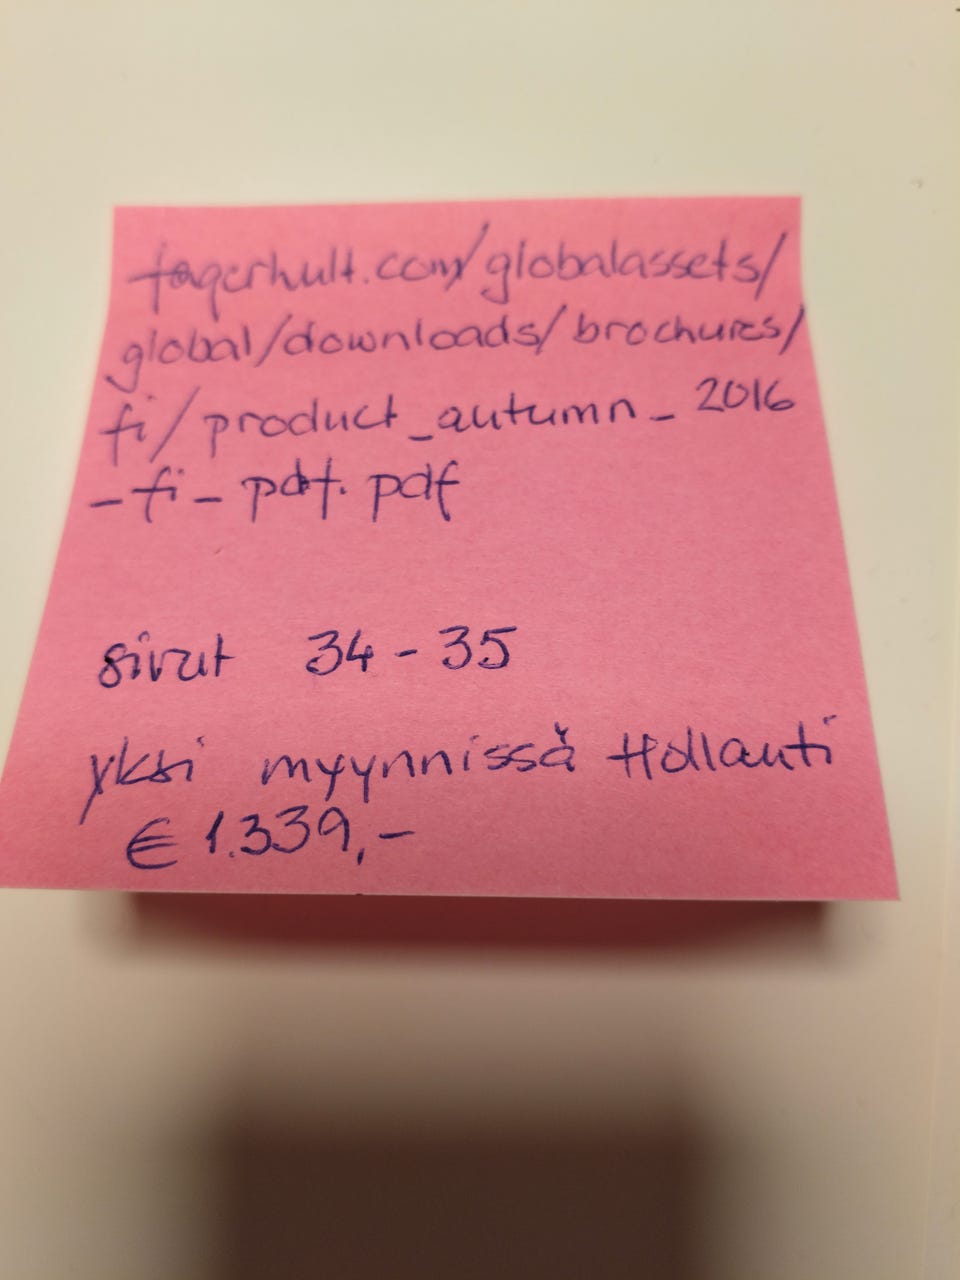 fagerhult.com/globalassets/
global/downloads/brochures/
fi/product_autumn_2016
_fi_pdf.pdf
sivut 34-35
yksi myynnissä Hollanti
€ 1.339,-